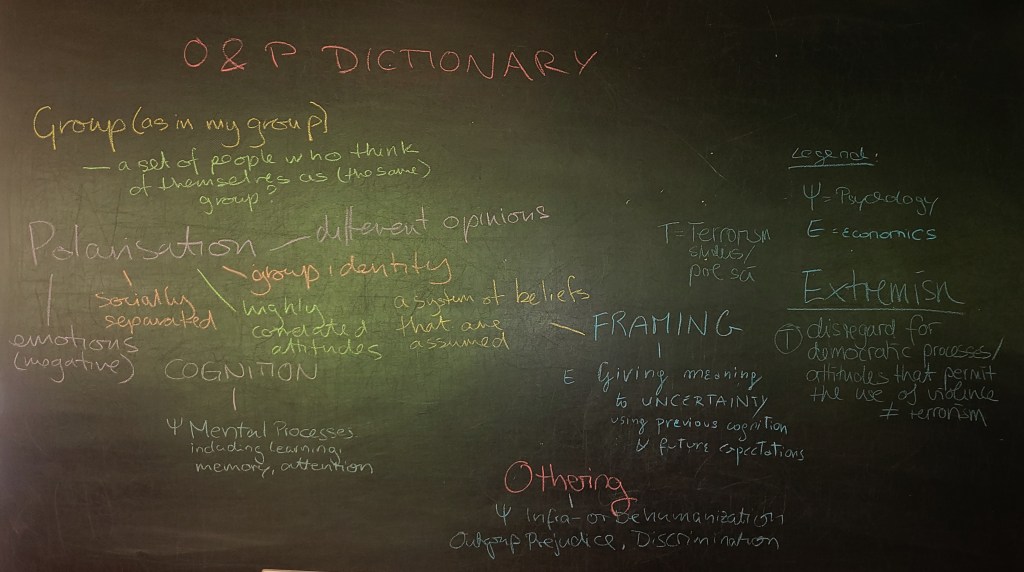 O & P DICTIONARY
Group (as in my group)
— a set of people who think
of themselves as (the same)
group?
Polarisation — different opinions
group identity
socially
separated
highly
correlated
attitudes
emotions
(negative)
a system of beliefs
that are
assumed
COGNITION
Ψ Mental Processes
including learning,
memory, attention
FRAMING
E Giving meaning
to UNCERTAINTY
using previous cognition
& future expectations
Othering
Ψ Infra- or Dehumanization
Outgroup Prejudice, Discrimination
Legend.
Ψ = Psychology
E = ECONOMICS
T = Terrorism
studies/
pol sci
Extremism
T disregard for
democratic processes/
attitudes that permit
the use of violence
≠ terrorism